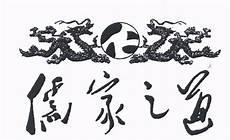 儒家之道